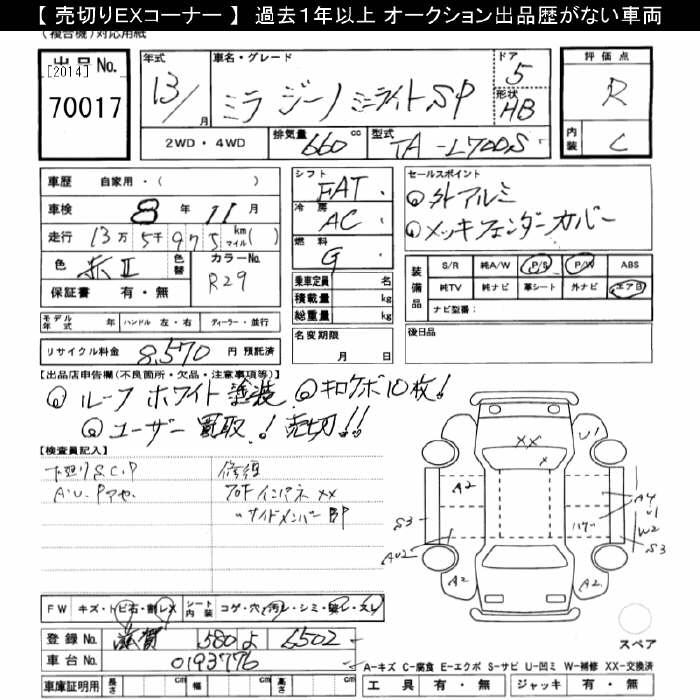 【 売切りEXコーナー 】 過去1年以上 オークション出品歴がない車両
(複合機)対応用紙
出品No. [2014] 70017
年式 13/ 月
車名・グレード ミラ ジーノ ミニライトSP
ドア 5
形状 HB
2WD・4WD
排気量 660 cc
型式 TA-L700S
評価点 R
内装 C
車歴 自家用・( )
車検 8年 11月
走行 13万 5千 975 km マイル( )
色 赤II 色替
カラーNo. R29
保証書 有・無
モデル年式 年 ハンドル 左・右 ディーラー・並行
リサイクル料金 8,570 円 預託済
シフト FAT
冷房 AC
燃料 G
乗車定員 名
積載量 kg
総重量 kg
名変期限 月 日
セールスポイント
◎外アルミ
◎メッキフェンダーカバー
装備品 S/R 純A/W P/S P/W ABS
純TV 純ナビ 革シート 外ナビ エアB
ナビ型番:
後日品
【出品店申告欄(不良箇所・欠品・注意事項等)】
◎ルーフ ホワイト塗装 ◎キロケボ10枚!
◎ユーザー買取! 売切!!
【検査員記入】
下廻りS.C.P
修復
インパネ XX
サイドメンバー
XX
U1
A2
A4
U1
W2
S3
S3
AU2
A2
A2
スペア
FW キズ・トビ石・割レX
シート内装 コゲ・穴・汚レ・シミ・破レ・スレ
登録No. 滋賀 580 よ 6502
車台No. 0193776
車庫証明用 長さ cm 幅 cm 高さ cm
A-キズ C-腐食 E-エクボ S-サビ U-凹ミ W-補修 XX-交換済
工具 有・無 ジャッキ 有・無